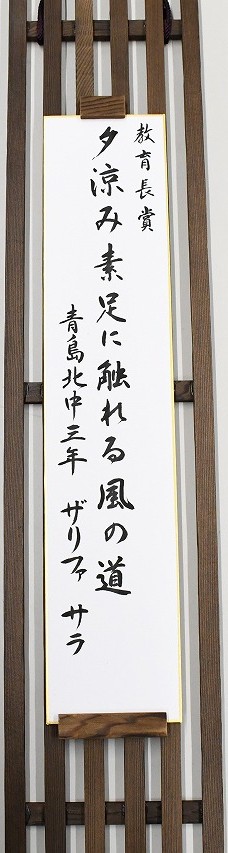 教育長賞
夕涼み素足に触れる風の道
青島北中三年 ザリファ サラ